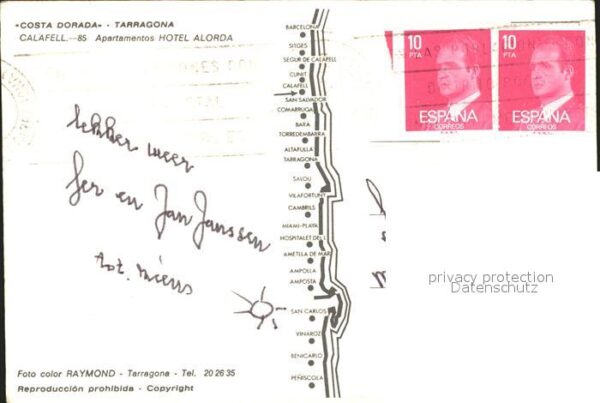 «COSTA DORADA» - TARRAGONA
CALAFELL.—85 Apartamentos HOTEL ALORDA
BARCELONA
SITGES
SEGUR DE CALAFELL
CUNIT
CALAFELL
SAN SALVADOR
COMARRUGA
BARA
TORREDEMBARRA
ALTAFULLA
TARRAGONA
SALOU
VILAFORTUNY
CAMBRILS
MIAMI-PLAYA
HOSPITALET DEL I.
AMETLLA DE MAR
AMPOLLA
AMPOSTA
SAN CARLOS
VINAROZ
BENICARLO
PEÑISCOLA
10 PTA
ESPAÑA
CORREOS
10 PTA
ESPAÑA
CORREOS
lekker weer
Ger en Jan Janssen
tot
privacy protection
Datenschutz
Foto color RAYMOND - Tarragona - Tel. 20 26 35
Reproducción prohibida - Copyright